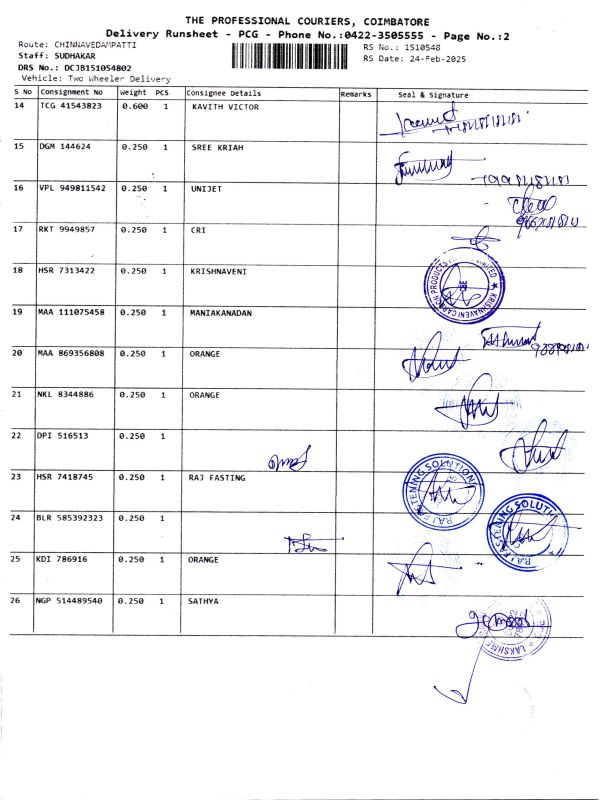 THE PROFESSIONAL COURIERS, COIMBATORE
Delivery Runsheet - PCG - Phone No.:0422-3505555 - Page No.:2
Route: CHINNAVEDAMPATTI
RS No.: 1510548
Staff: SUDHAKAR
RS Date: 24-Feb-2025
DRS No.: DCJB151054802
Vehicle: Two Wheeler Delivery
S No Consignment No Weight PCS Consignee Details Remarks Seal & Signature
14 TCG 41543823 0.600 1 KAVITH VICTOR
15 DGM 144624 0.250 1 SREE KRIAH
16 VPL 949811542 0.250 1 UNIJET
17 RKT 9949857 0.250 1 CRI
18 HSR 7313422 0.250 1 KRISHNAVENI
KRISHNAVENI CARBON PRODUCTS LIMITED
19 MAA 111075458 0.250 1 MANIAKANADAN
20 MAA 869356808 0.250 1 ORANGE
21 NKL 8344886 0.250 1 ORANGE
22 DPI 516513 0.250 1
23 HSR 7418745 0.250 1 RAJ FASTING
RAJ FASTENING SOLUTION
24 BLR 585392323 0.250 1
RAJ FASTENING SOLUTION
25 KDI 786916 0.250 1 ORANGE
26 NGP 514489540 0.250 1 SATHYA